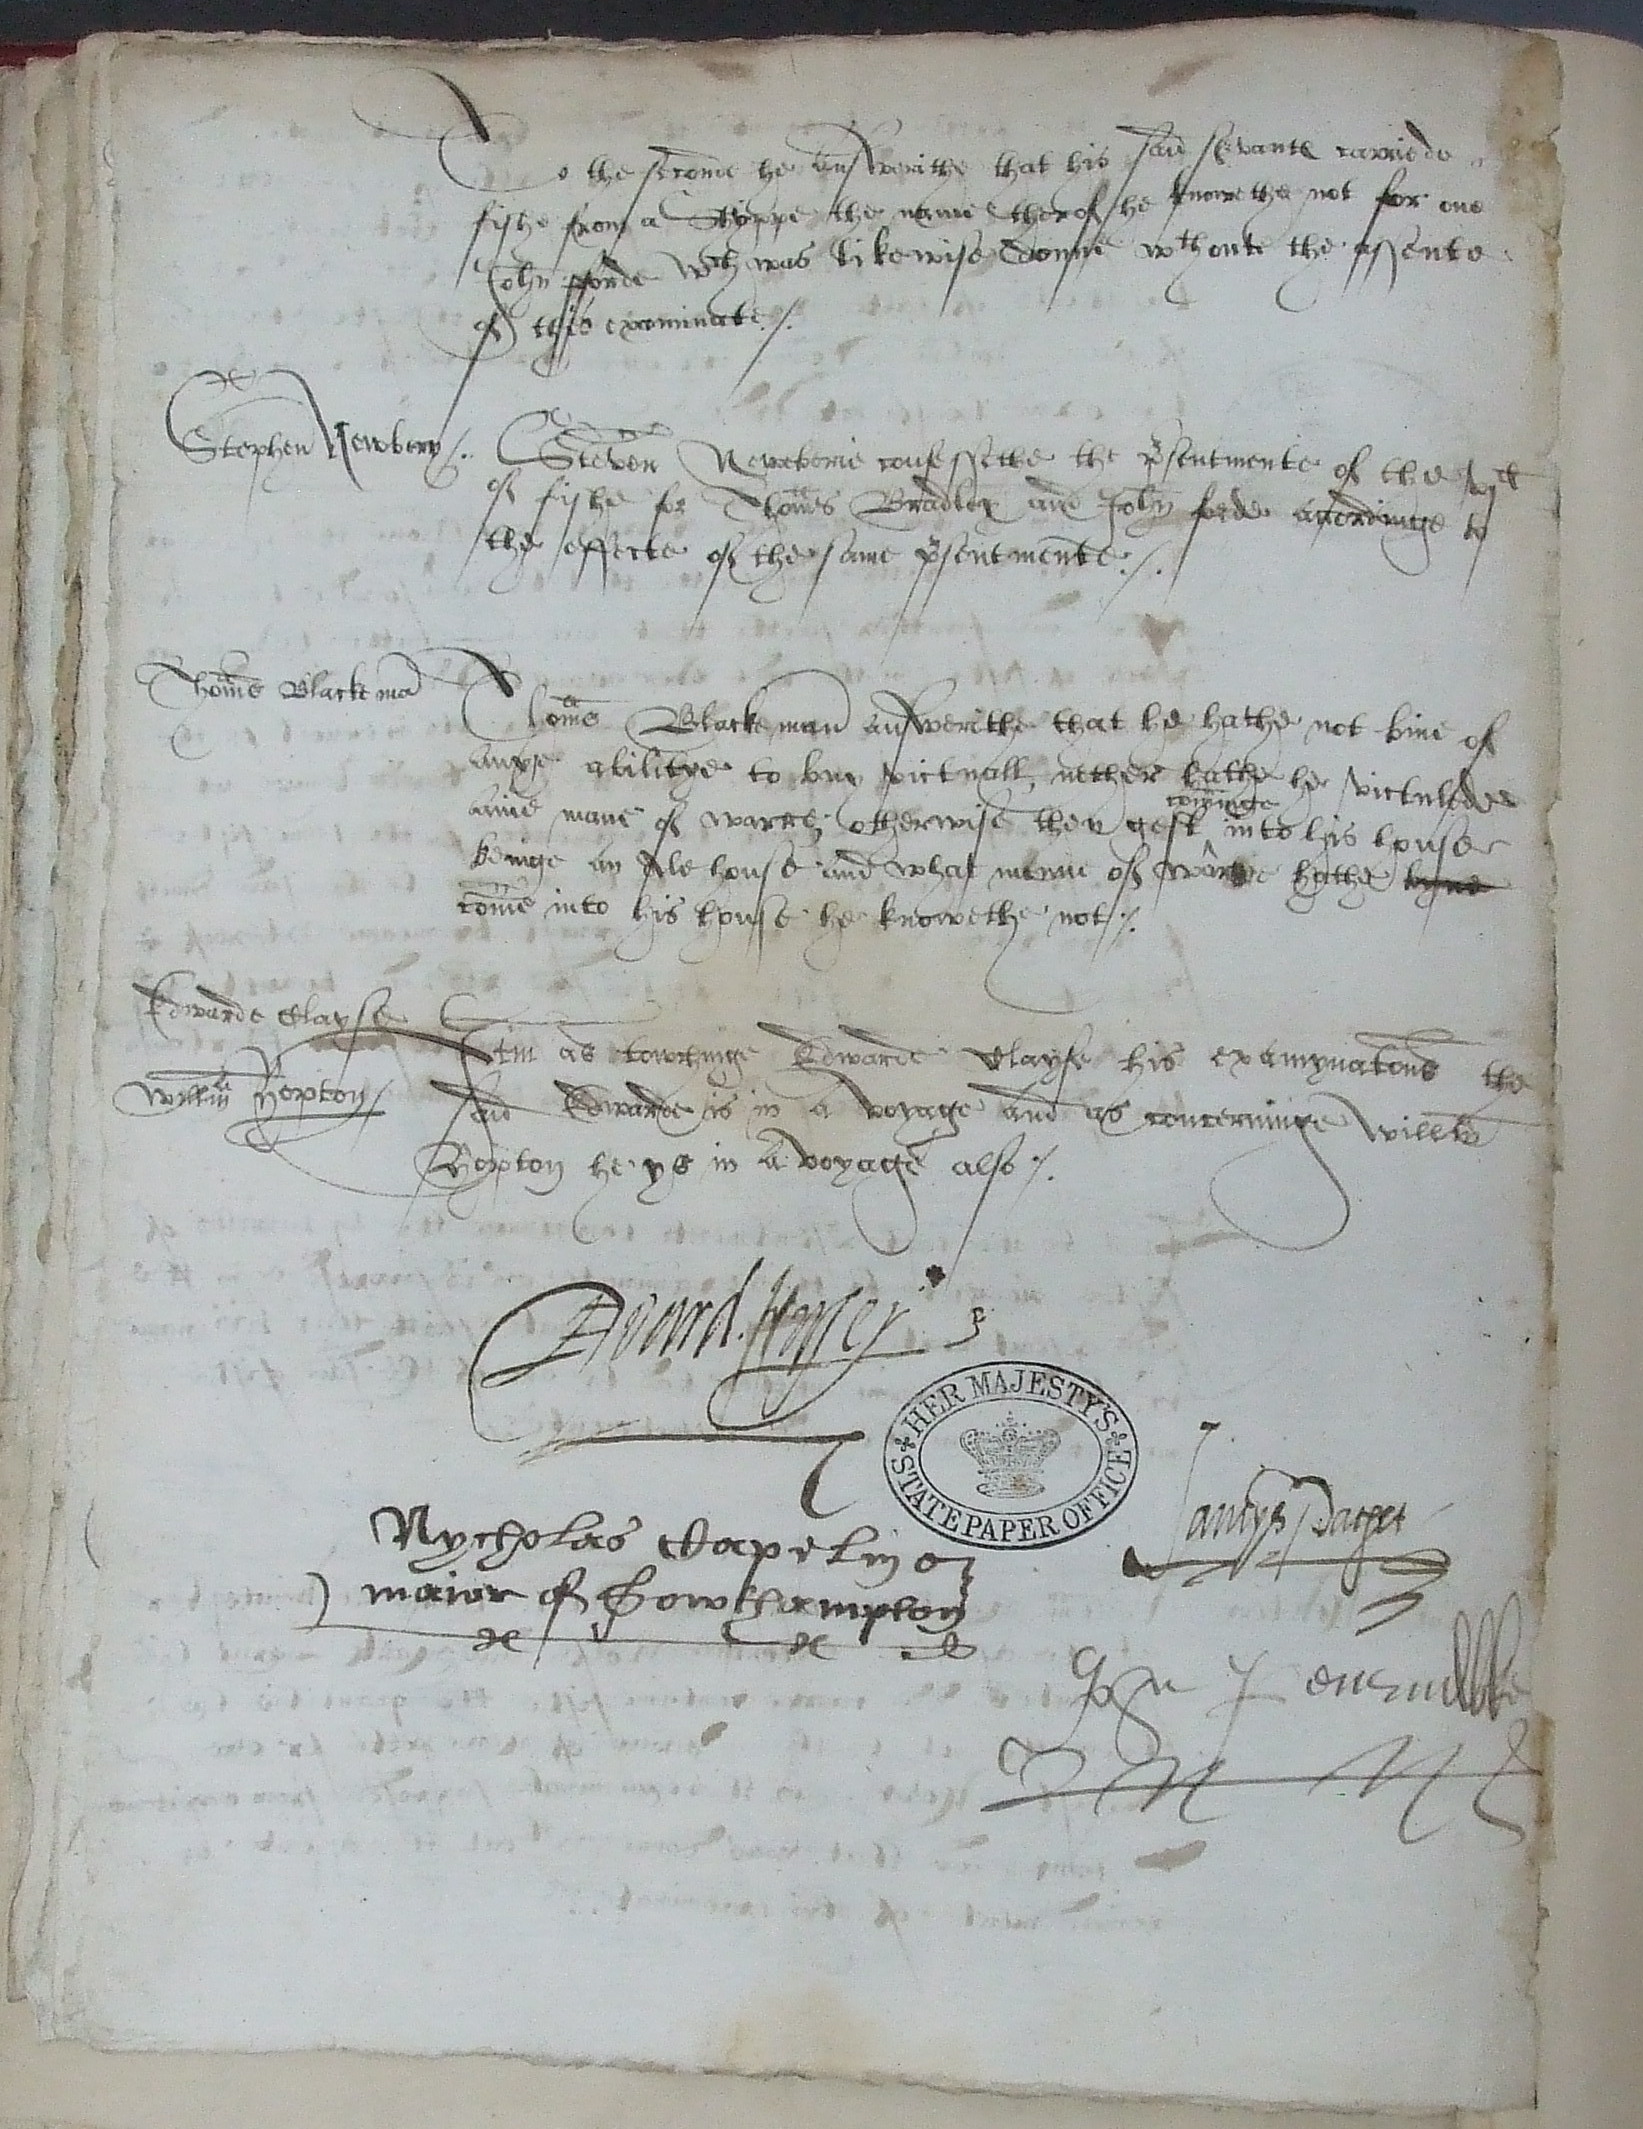 To the seconde he answerithe that his said servante cariede
fishe from a Shippe the name therof he knowethe not for one
John fforde wch was likewise donne wthoute the assente
of this examinate /.
Stephen Newbery /.
Steven Newberie confessethe the p̄sentmente of the
of fishe for Thom̄s Bradley and John forde accordinge to
the effecte of the same p̄sentmente /.
Thom̄s Blackmā
Thom̄s Blackeman answerithe that he hathe not bine of
anye abilitye to buy victuall, nether hathe he victulede
anie mane of warre, otherwise then gest cominge into his house
beinge an Alehouse and what menne of warre hathe byne
come into his house he knowethe not /.
Edwarde Clayse
Willm̄ Hopton /
Itm̄ as towchinge Edwarde Clayse his examynatōns the
said Edwarde is in a voyage and as concerninge Willm̄
Hopton he ys in a voyage also /.
Edward Horsey
HER MAJESTY'S
STATE PAPER OFFICE
Nycholas Capelin
maior of Sowthampton
Jamys Paget
John